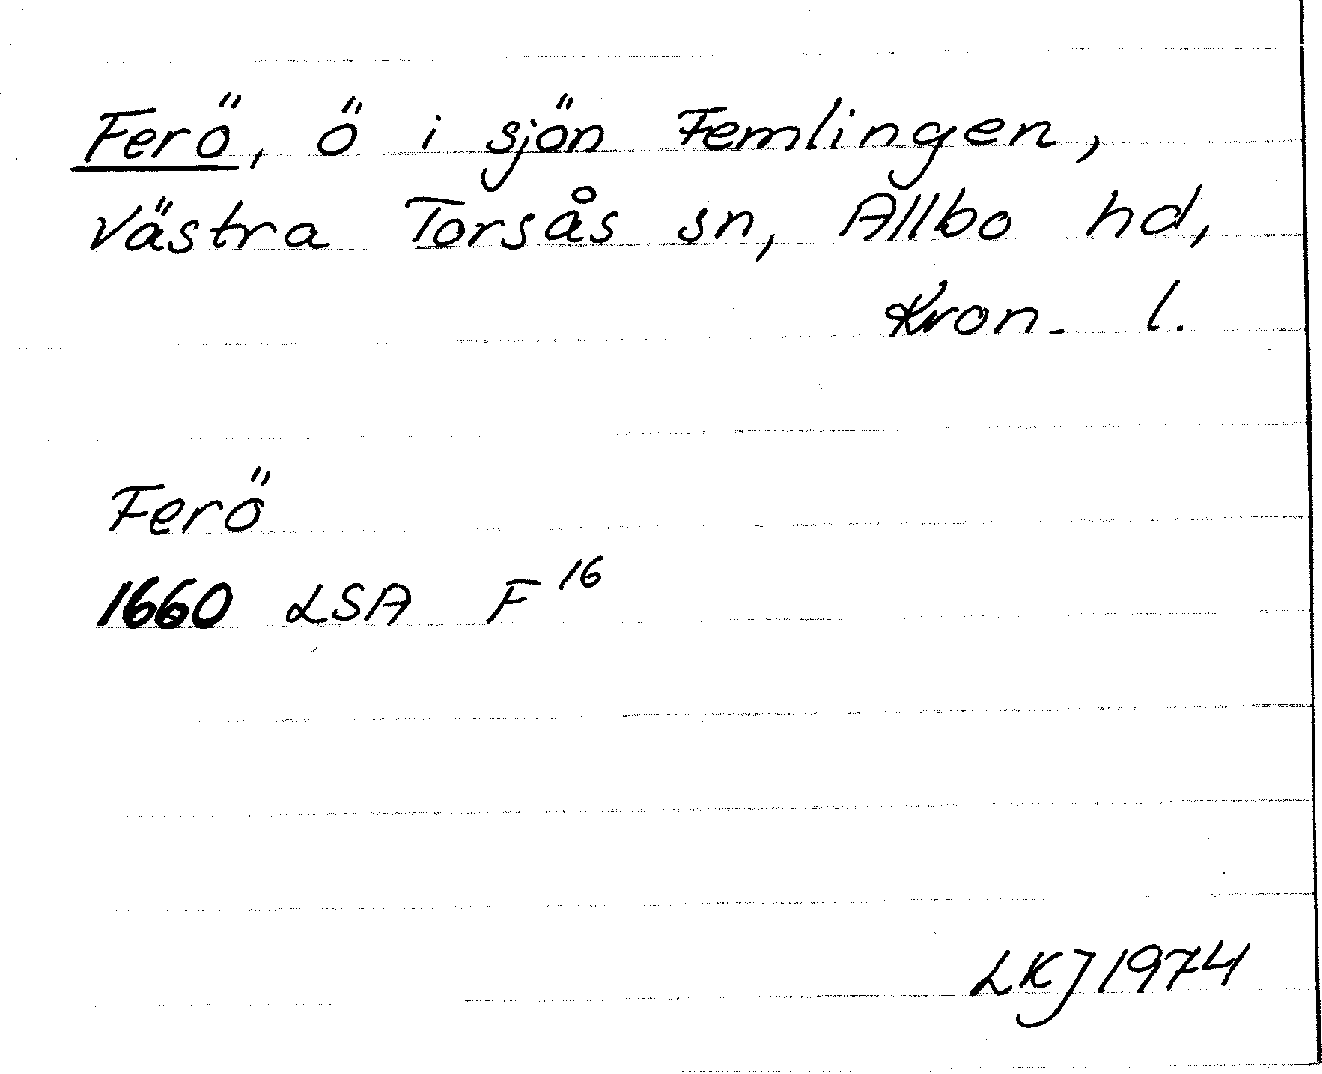 Ferö, ö i sjön Femlingen,
Västra Torsås sn, Allbo hd,
Kron. l.
Ferö
1660 LSA F 16
LKJ 1974